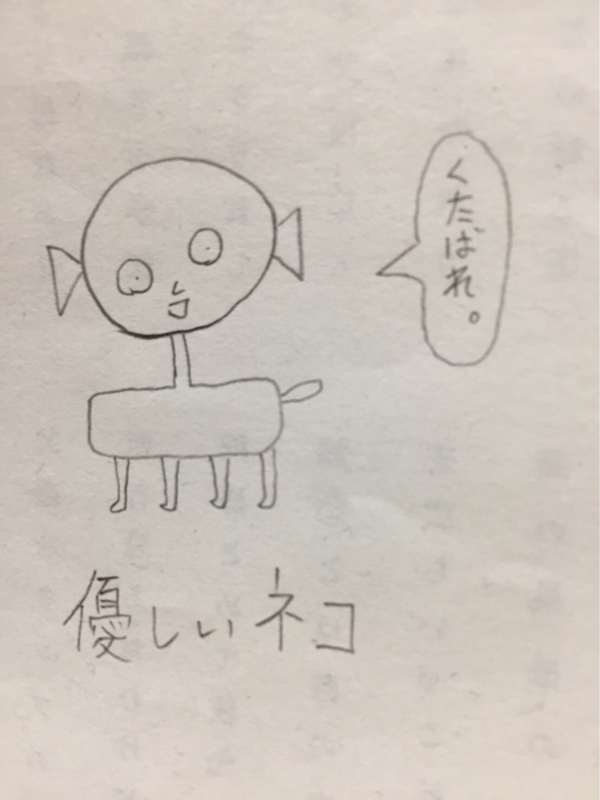 くたばれ。
優しいネコ